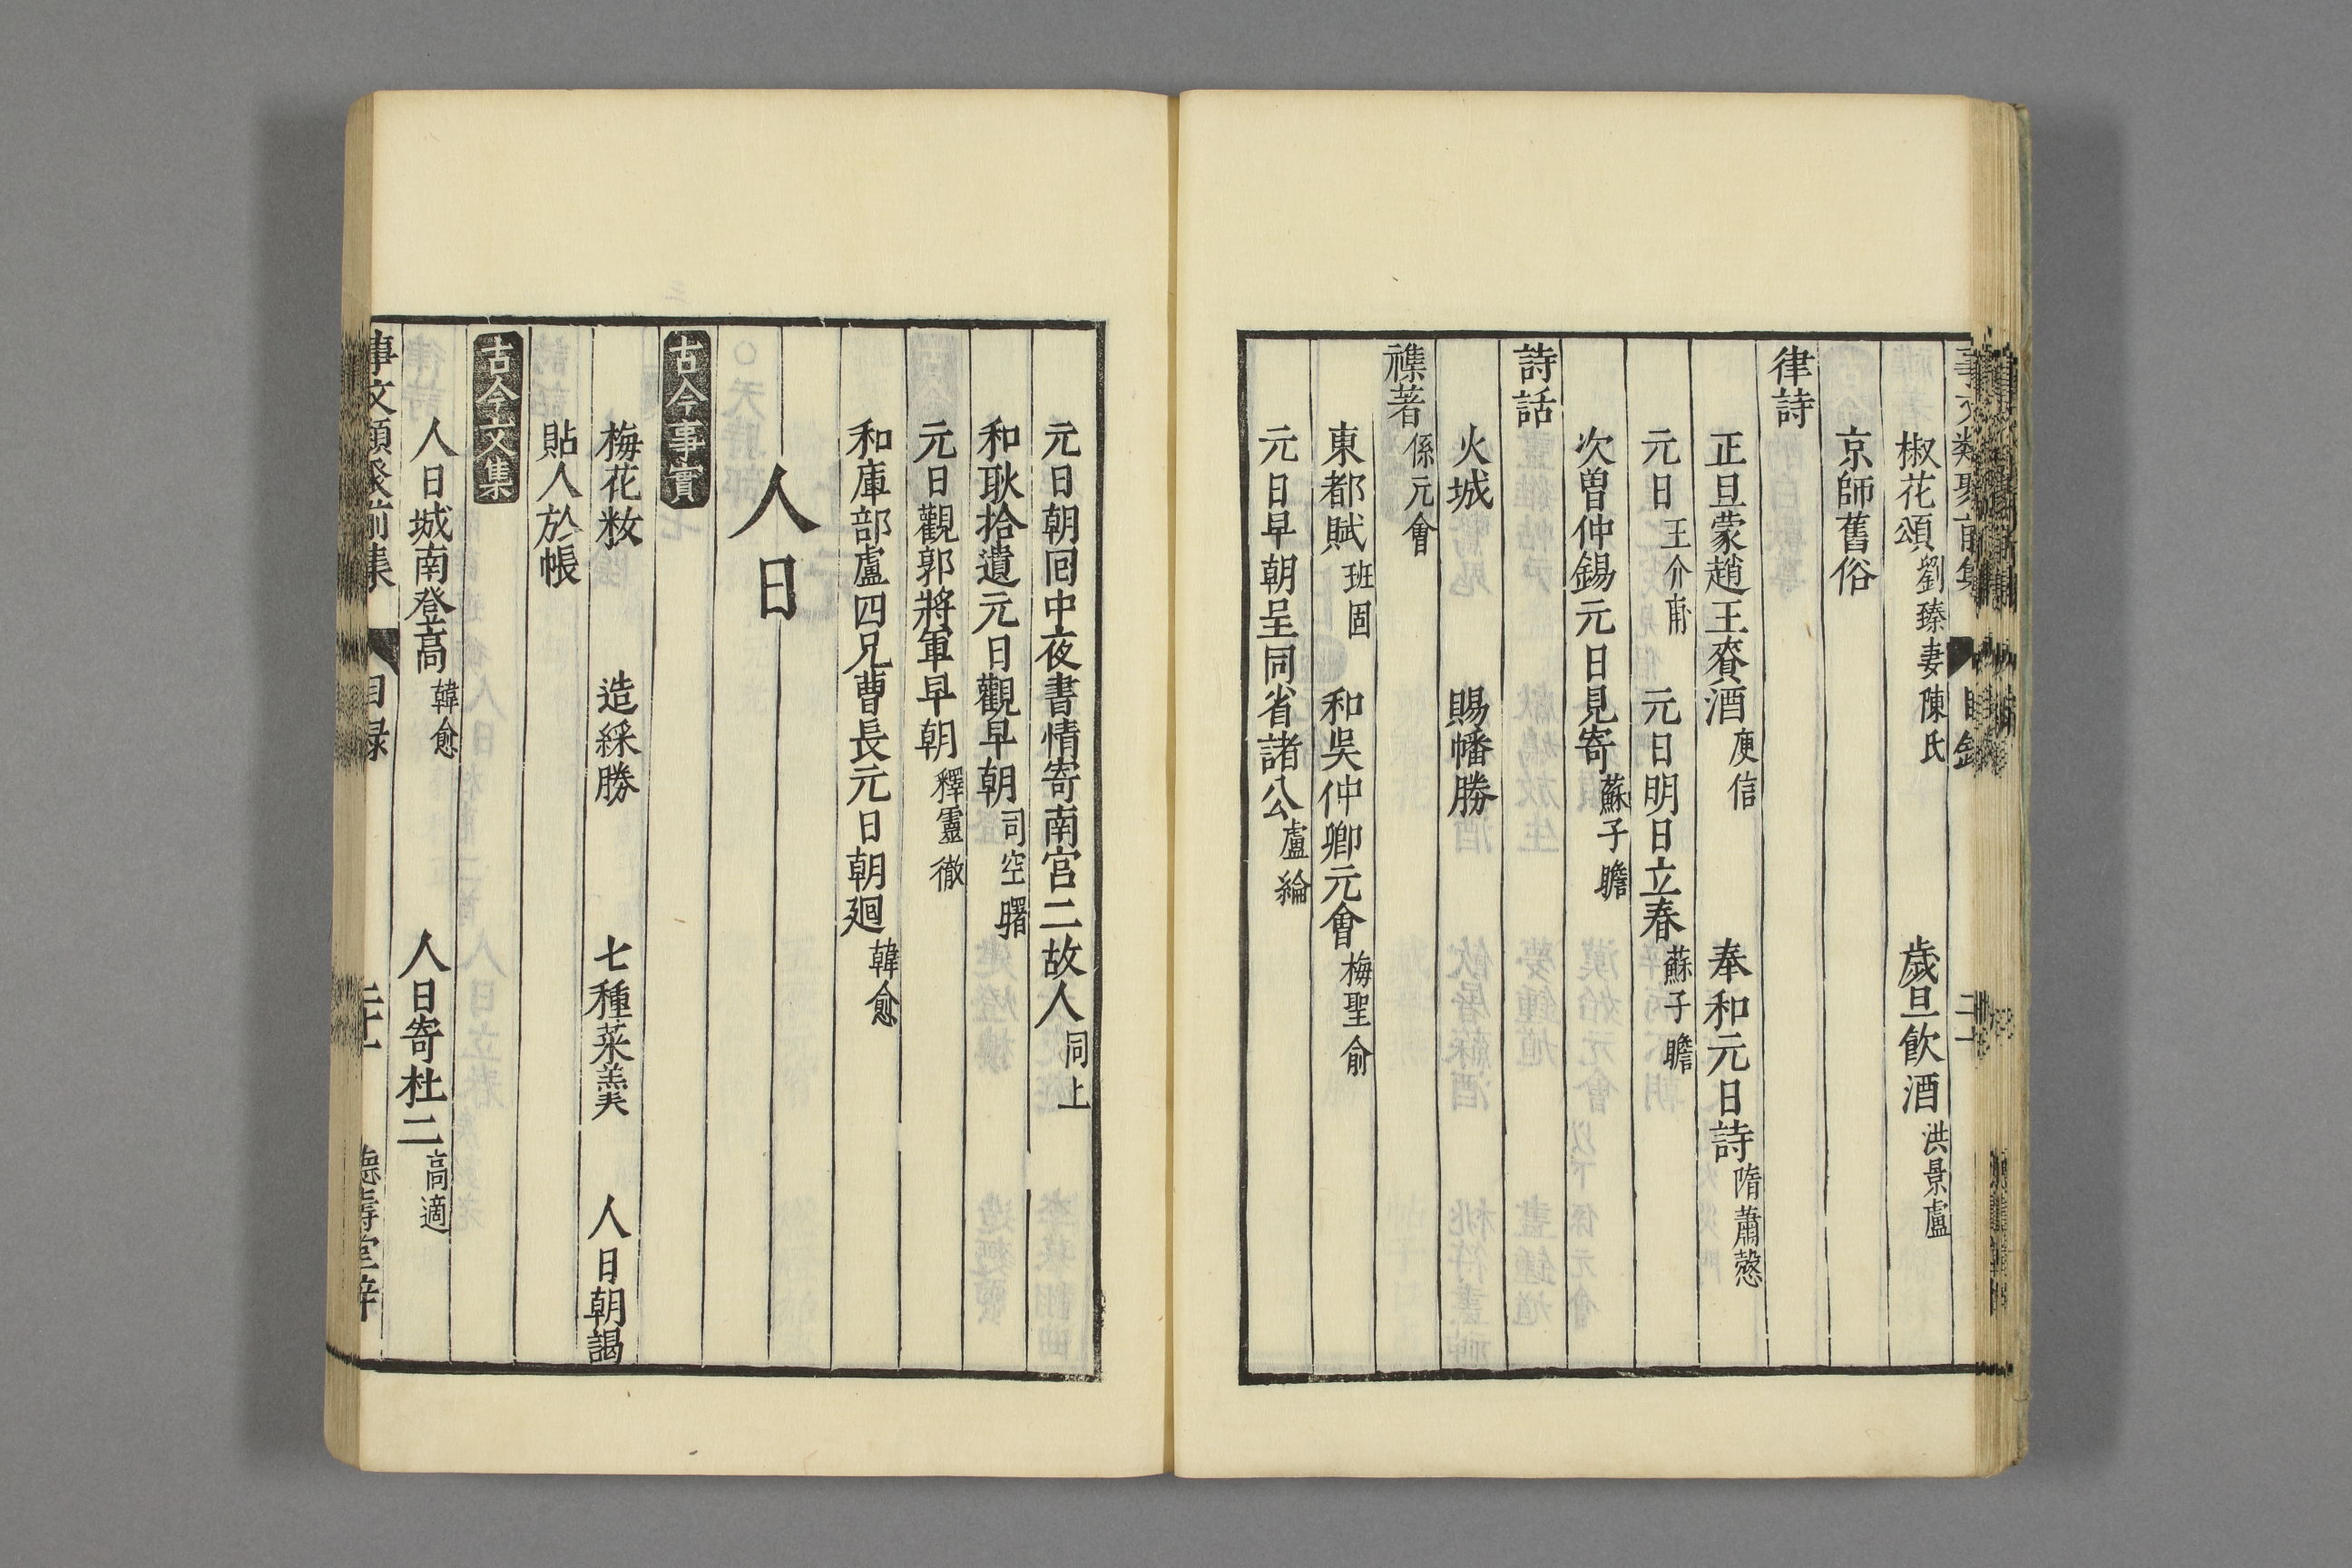 椒花頌 劉臻妻陳氏 歲旦飲酒 洪景盧
京師舊俗
律詩
正旦蒙趙王賚酒 庾信 奉和元日詩 隋蕭慤
元日 王介甫 元日明日立春 蘇子瞻
次曾仲錫元日見寄 蘇子瞻
詩話
火城 賜幡勝
襍著 係元會
東都賦 班固 和吳仲卿元會 梅聖俞
元日早朝呈同省諸公 盧綸
元日朝回中夜書情寄南宮二故人 同上
和耿拾遺元日觀早朝 司空曙
元日觀郭將軍早朝 釋靈徹
和庫部盧四兄曹長元日朝廻 韓愈
人日
古今事實
梅花粧 造綵勝 七種菜羹 人日朝謁
貼人於帳
古今文集
人日城南登高 韓愈 人日寄杜二 高適
事文類聚前集 目録 德壽堂梓